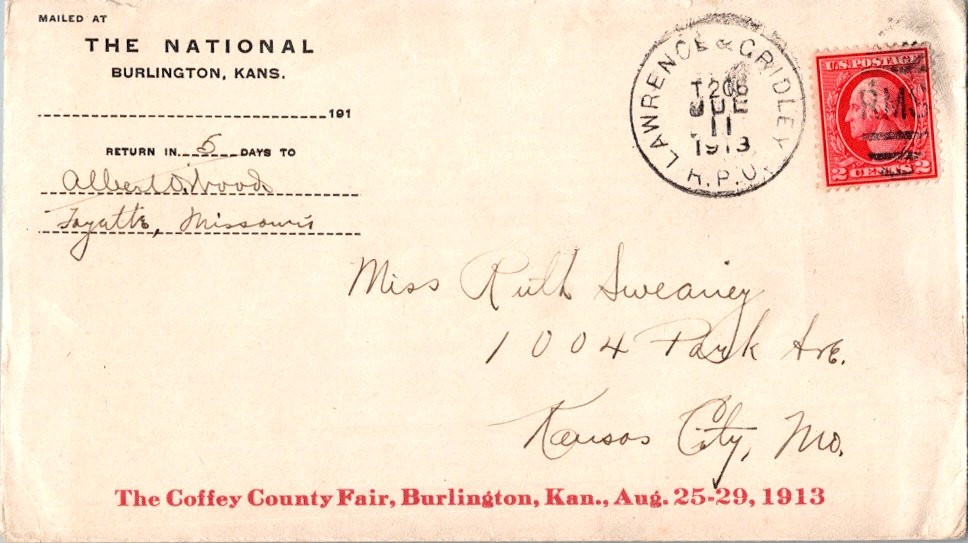 MAILED AT
THE NATIONAL
BURLINGTON, KANS.
191
RETURN IN 5 DAYS TO
Albert O. Woods
Fayette, Missouri
LAWRENCE & GRIDLEY
T206
11
1913
R.P.O.
U.S. POSTAGE
RMS
2 CENTS 2
Miss Ruth Sweaney
1004 Park Ave.
Kansas City, Mo.
The Coffey County Fair, Burlington, Kan., Aug. 25-29, 1913